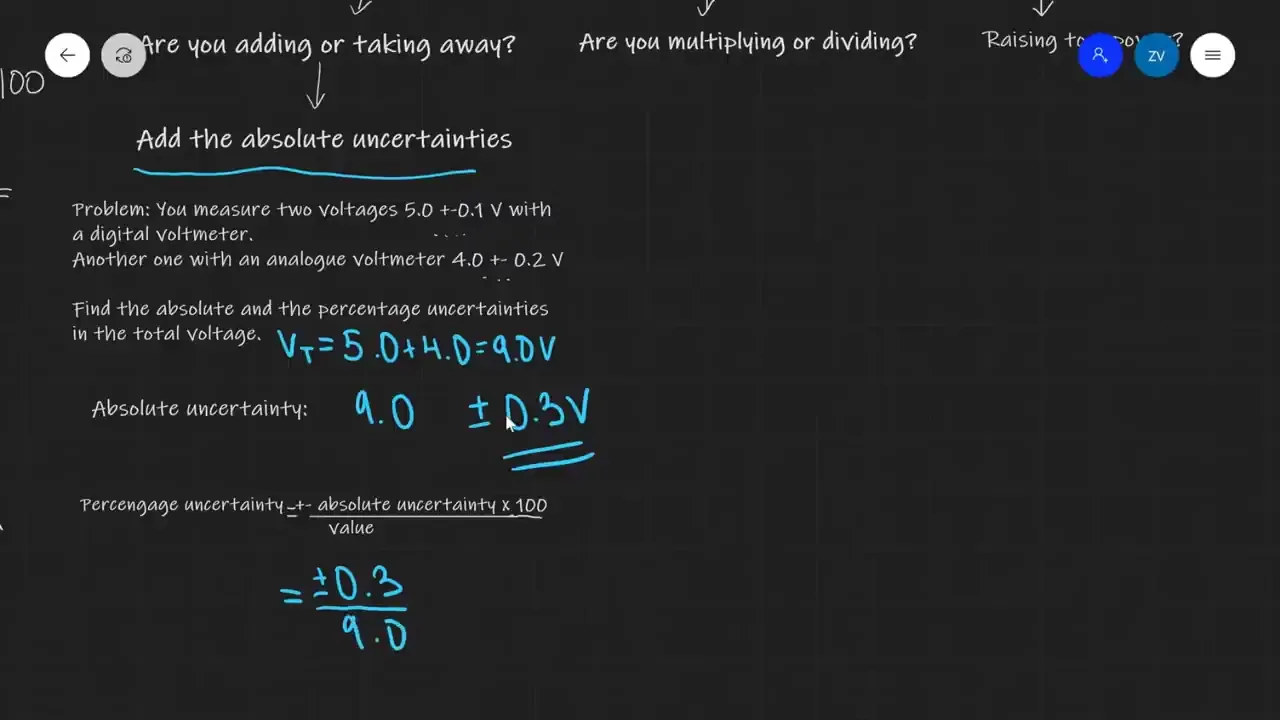 Are you adding or taking away?
Are you multiplying or dividing?
Raising to
ZV
100
Add the absolute uncertainties
=
Problem: You measure two voltages 5.0 +-0.1 V with
a digital voltmeter.
Another one with an analogue voltmeter 4.0 +- 0.2 V
Find the absolute and the percentage uncertainties
in the total voltage.
VT = 5.0+4.0=9.0V
Absolute uncertainty: 9.0 ± 0.3V
Percengage uncertainty =+- absolute uncertainty x 100
value
= ±0.3
9.0